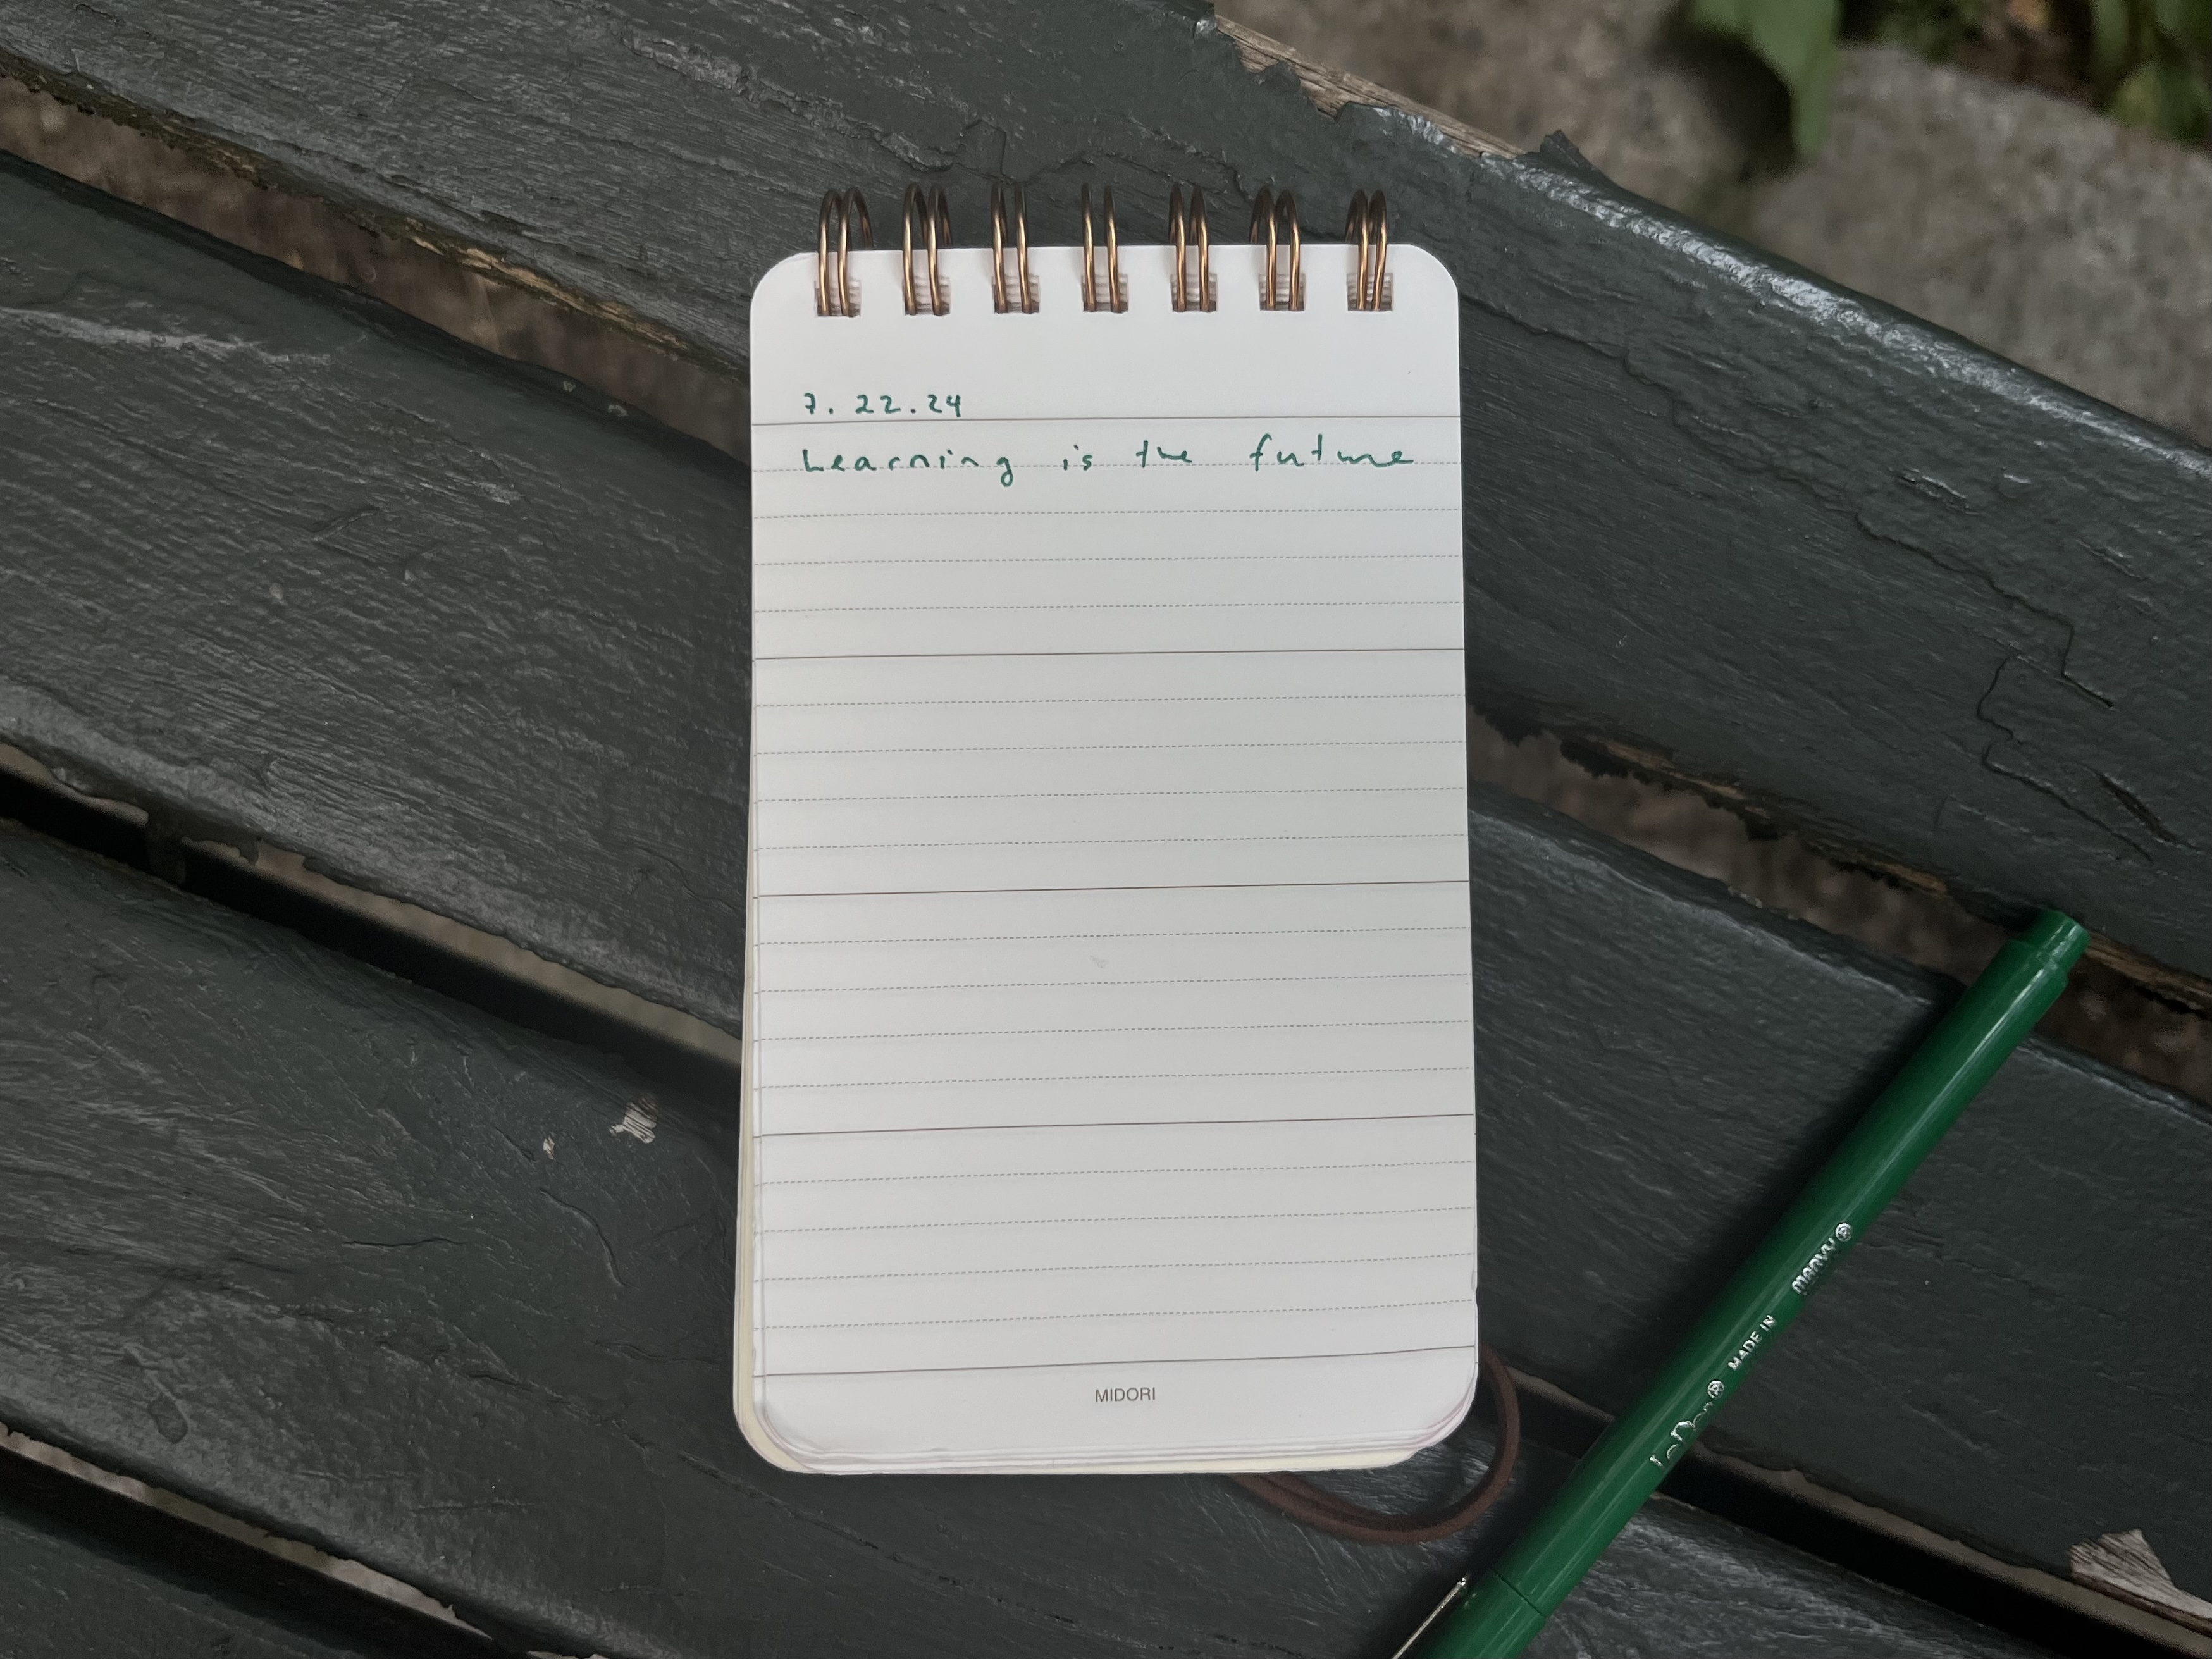 7.22.24
Learning is the future
MIDORI
LePen® MADE IN MARVY®